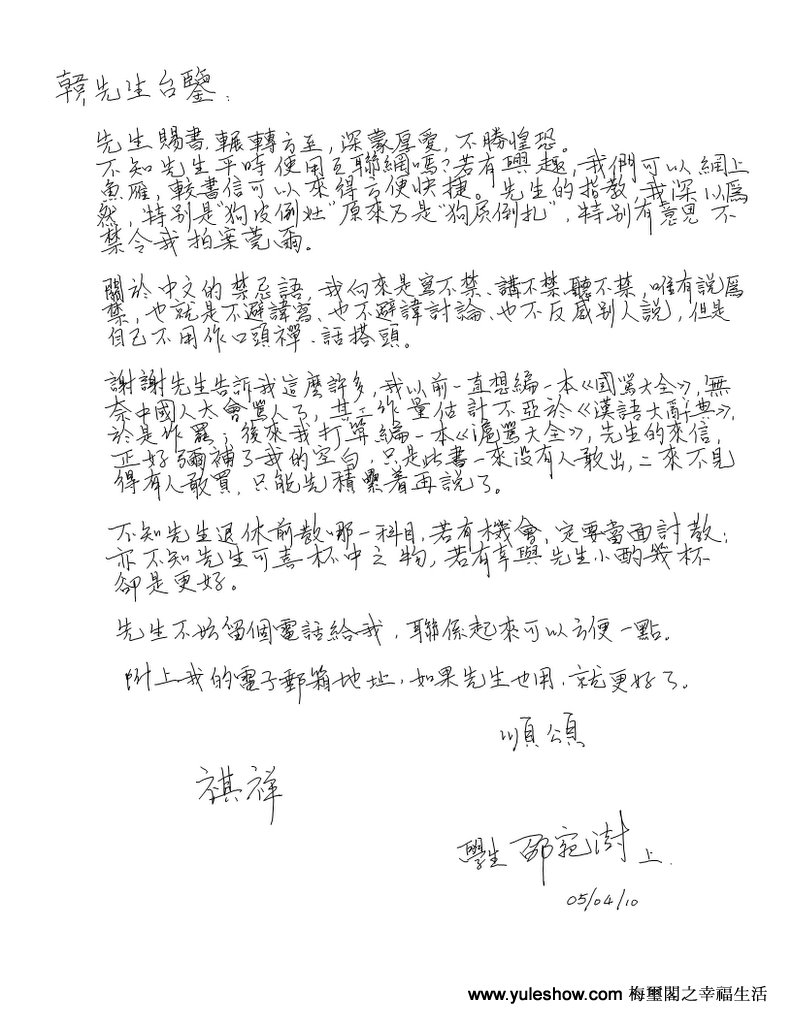 賴先生台鑒：
先生賜書，輾轉方至，深蒙厚愛，不勝惶恐。
不知先生平時使用互聯網嗎？若有興趣，我們可以網上
魚雁，較書信可以來得方便快捷。先生的指教，我深以爲
然，特别是“狗皮倒灶”原來乃是“狗屄倒扎”，特别有意思，不
禁令我拍案莞爾。
關於中文的禁忌語，我向來是寫不禁、講不禁、聽不禁，唯有説爲
禁，也就是不避諱寫、也不避諱討論、也不反感别人説，但是
自己不用作口頭禪、話搭頭。
謝謝先生告訴我這麽許多，我以前一直想編一本《國駡大全》，無
奈中國人太會駡人了，其工作量估計不亞於《漢語大辭典》，
於是作罷；後來我打算編一本《滬駡大全》，先生的來信，
正好彌補了我的空白，只是此書一來没有人敢出，二來不見
得有人敢買，只能先積纍着再説了。
不知先生退休前教哪一科目，若有機會，定要當面討教；
亦不知先生可喜杯中之物，若有幸與先生小酌幾杯
卻是更好。
先生不妨留個電話給我，聯係起來可以方便一點。
附上我的電子郵箱地址，如果先生也用，就更好了。
順頌
祺祥
學生 邵宛澍 上．
05/04/10
www.yuleshow.com 梅璽閣之幸福生活